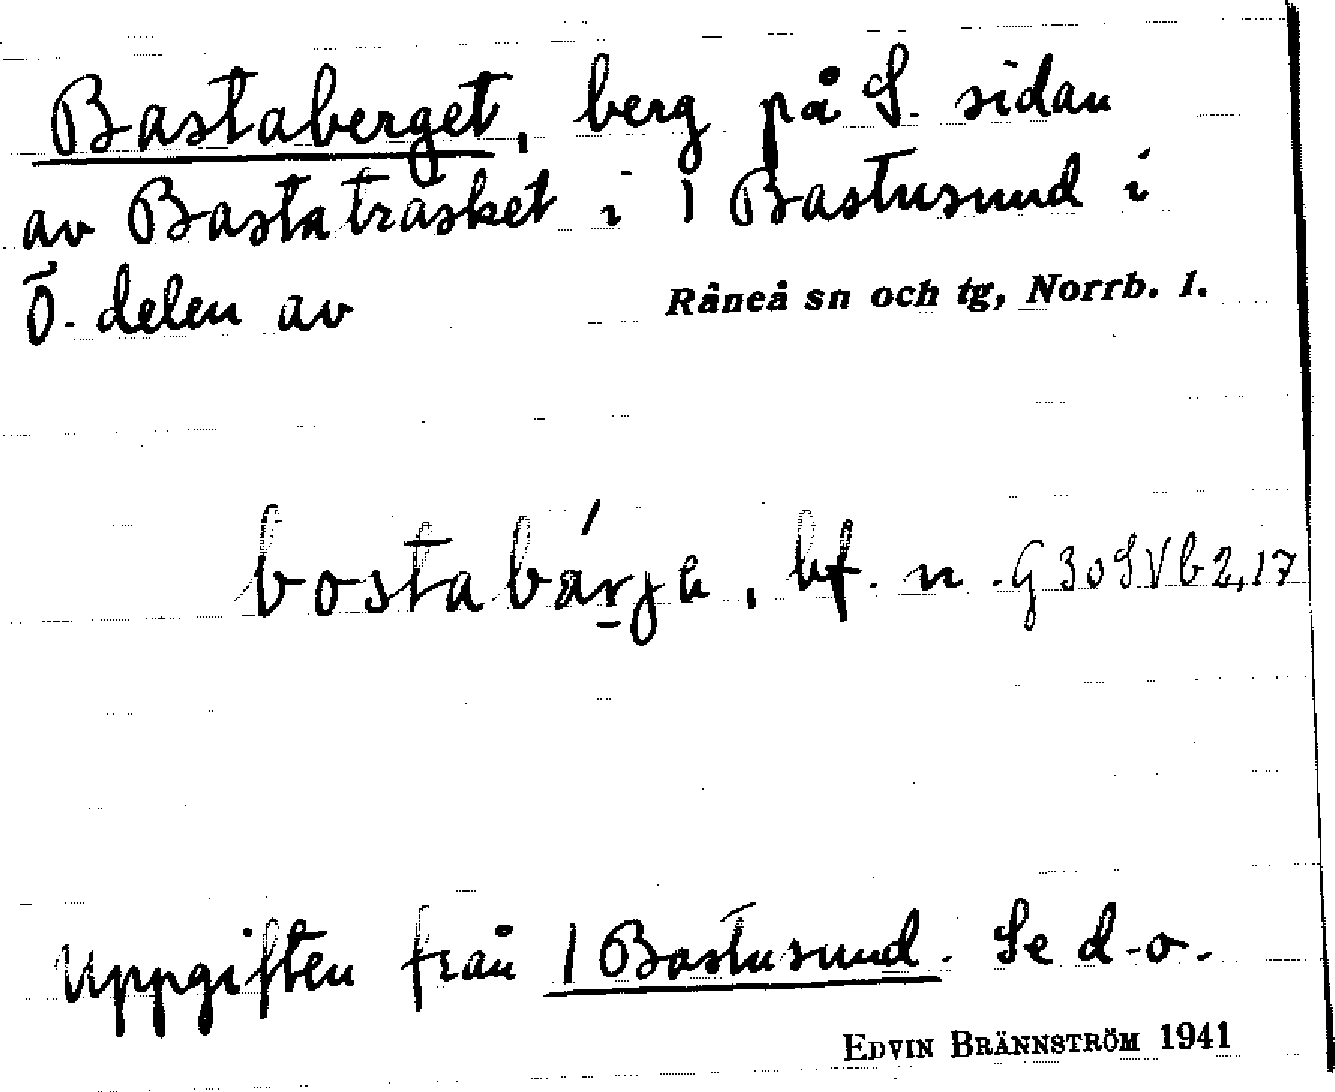 Bastaberget, berg på S. sidan
av Bastaträsket i 1 Bastusund i
Ö. delen av Råneå sn och tg, Norrb. l.
bostabárjɐ, bf. n. G30SVb2,17
Uppgiften från 1 Bastusund. Se d-o.
EDVIN BRÄNNSTRÖM 1941